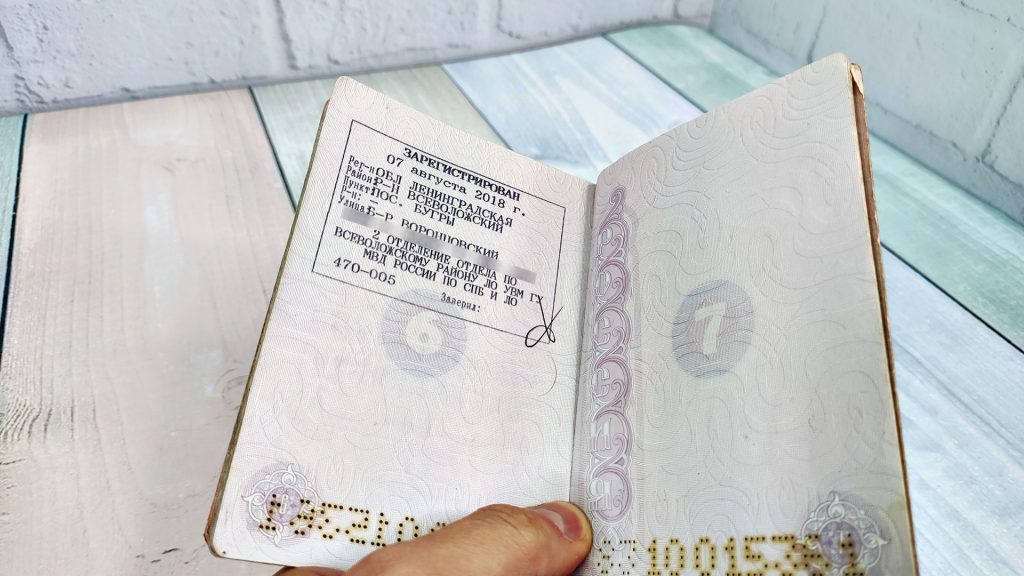 ЗАРЕГИСТРИРОВАН
07 августа 2018 г.
Рег-н ОБЛ ЛЕНИНГРАДСКАЯ
Район: Р-Н ВСЕВОЛОЖСКИЙ
Пункт: ПОС. БУГРЫ
Р-н: -
Улица: Б-Р ВОРОНЦОВСКИЙ
2 ОТДЕЛЕНИЕ ОТДЕЛА ПО
ВСЕВОЛОЖСКОМУ РАЙОНУ ЛО УВМ ГУ
МВД РОССИИ ПО СПБ И ЛО
470-005
Заверил:
6
7